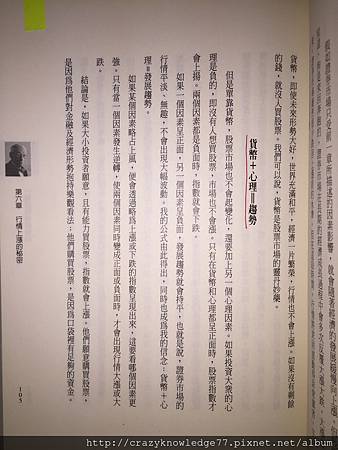 貨幣，即使未來形勢大好，世界充滿和平，經濟一片繁榮，行情也不會上漲。如果沒有剩餘
的錢，就沒人買股票。我們可以說，貨幣是股票市場的靈丹妙藥。
貨幣＋心理＝趨勢
但是單靠貨幣，股票市場也不會起變化，還要加上另一個心理因素。如果投資大眾的心
理是負的，即沒有人想買股票，市場也不會漲。只有在貨幣和心理都呈正面時，股票指數才
會上揚。兩個因素都是負面時，指數就會下跌。
如果一個因素呈正面，另一個因素呈負面，發展趨勢就會持平，也就是說，證券市場的
行情平淡、無趣，不會出現大幅波動。我的公式由此得出，同時也成為我的信念：貨幣＋心
理＝發展趨勢。
如果某個因素略占上風，便會透過略為上漲或下跌的指數呈現出來，這要看哪個因素更
強。只有當一個因素發生逆轉，使兩個因素同時變成正面或負面時，才會出現行情大漲或大
跌。
結論是，如果大小投資者願意，且有能力買股票，指數就會上漲。他們願意購買股票，
是因為他們對金融及經濟形勢抱持樂觀看法；他們購買股票，是因為口袋裡有足夠的資金。
第六章 行情上漲的秘密
105
http://crazyknowledge77.pixnet.net/album